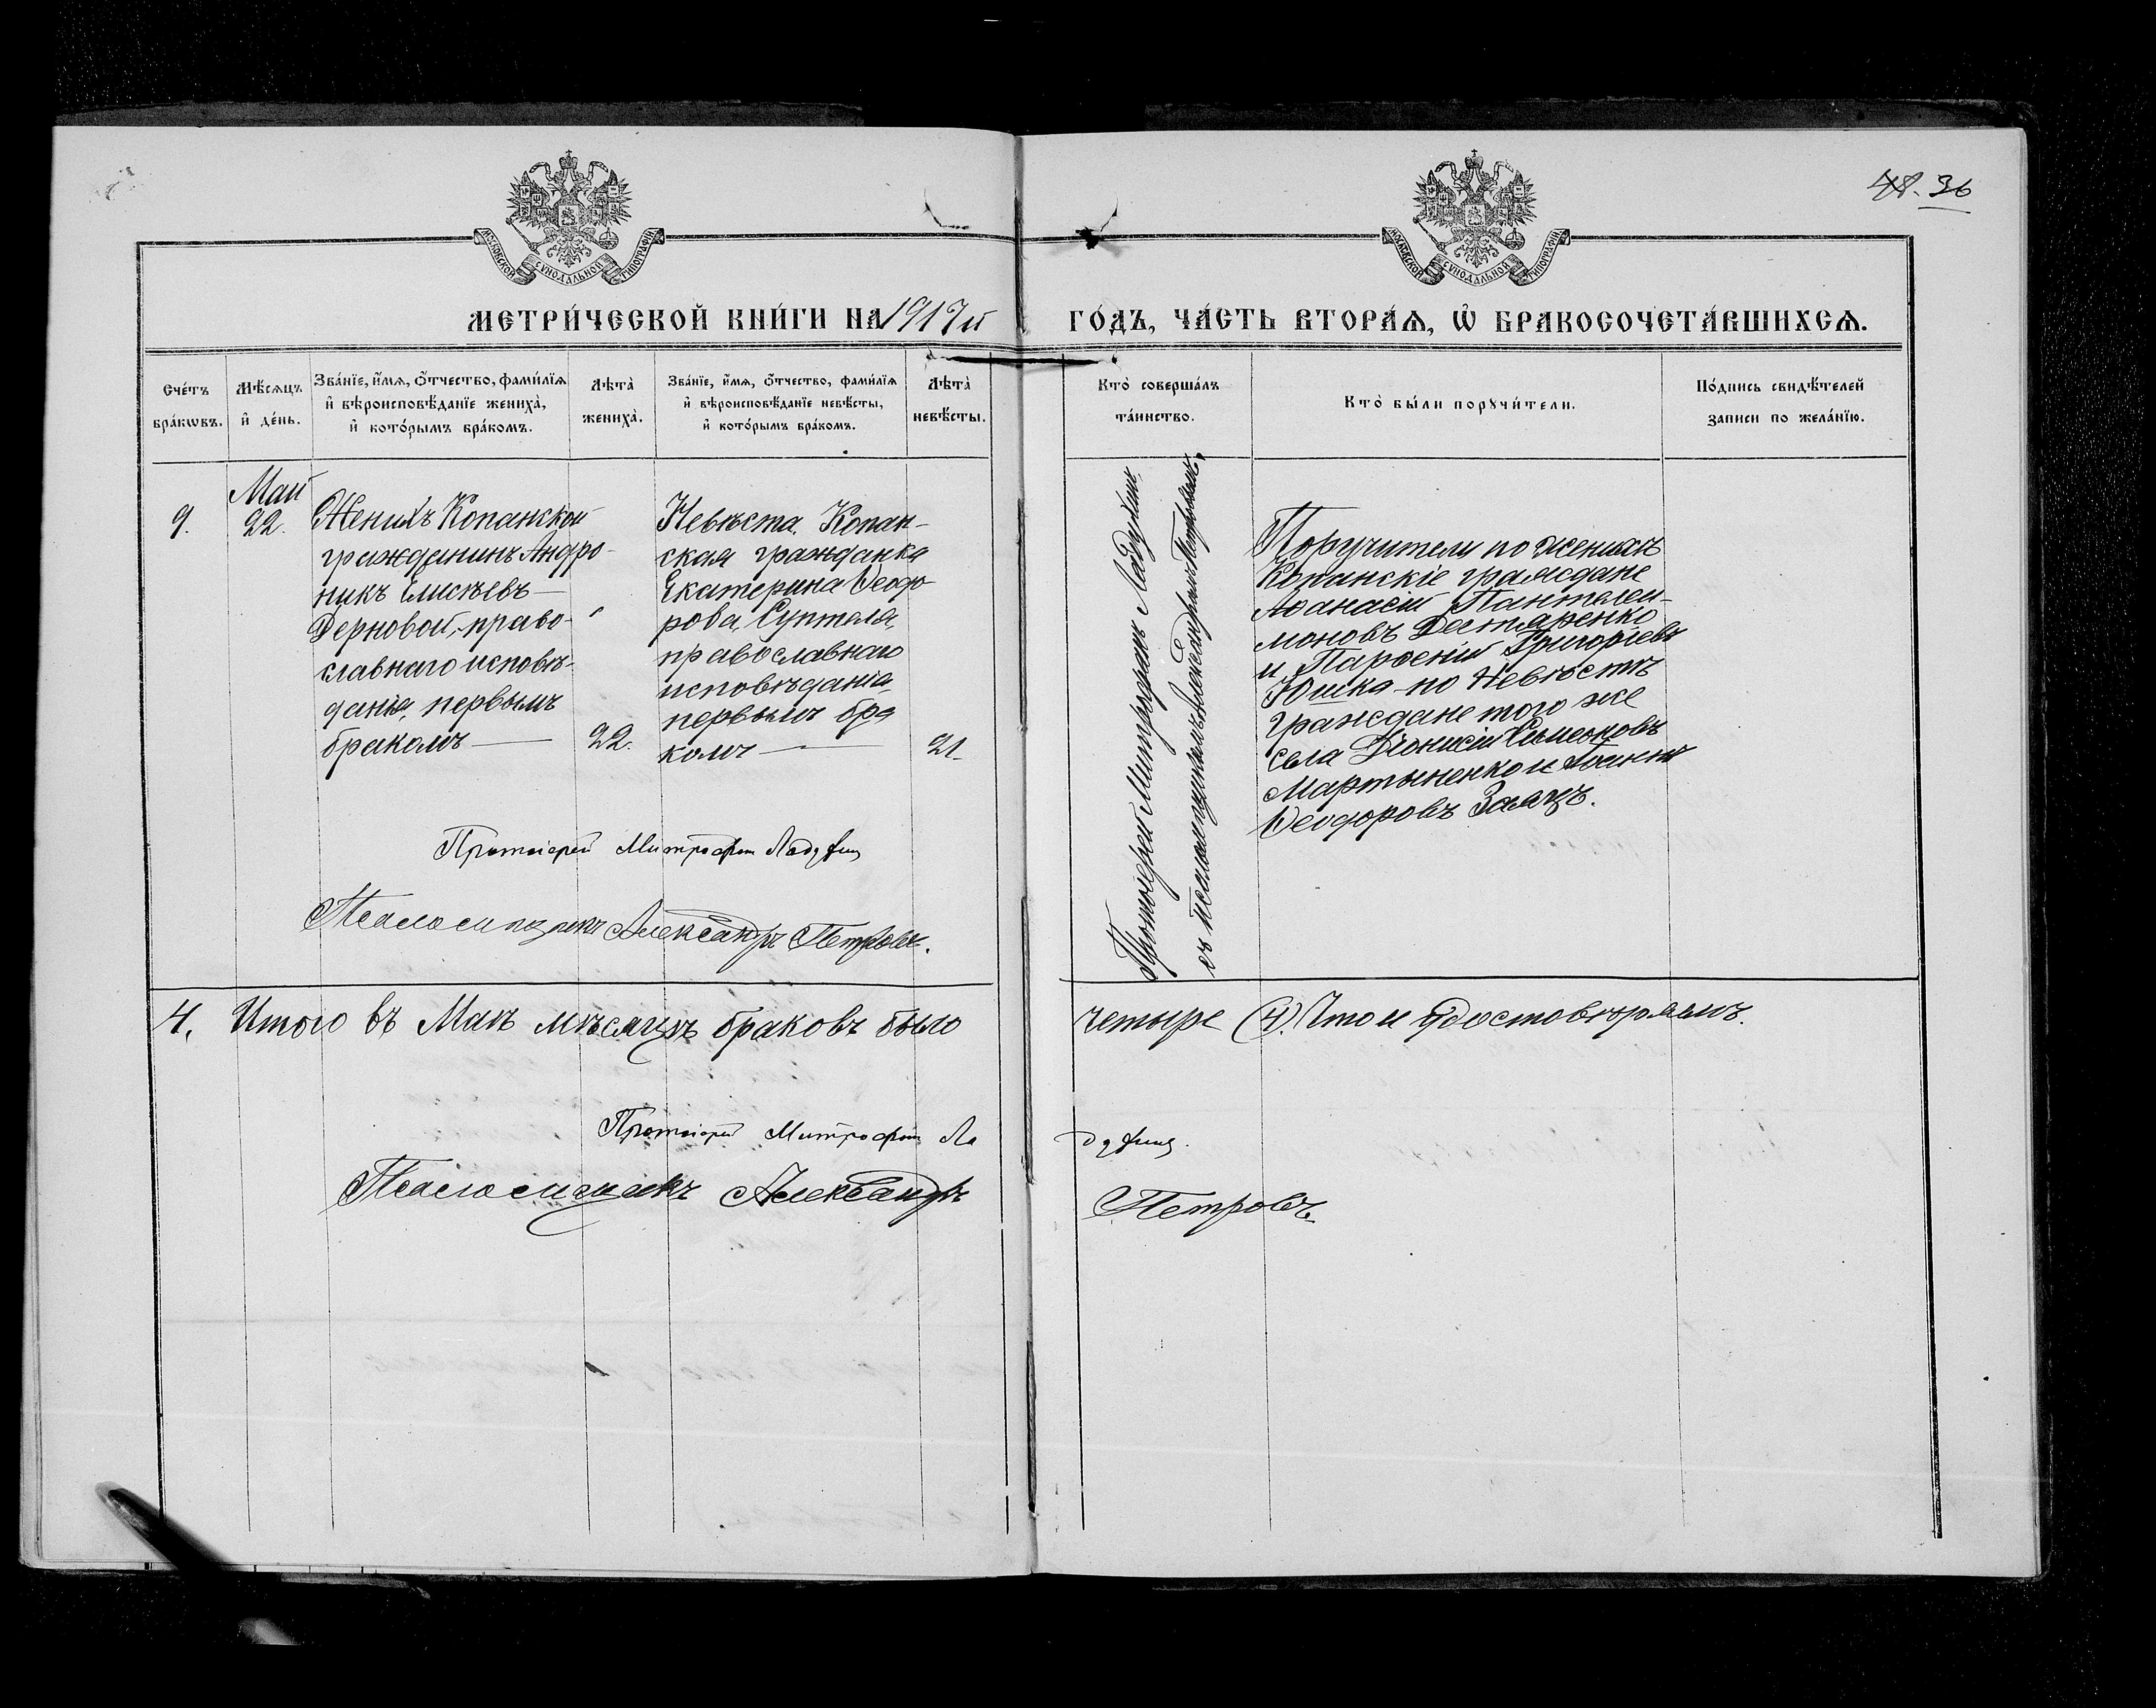 48. 36
МОСКОВСКОЙ СѴНОДАЛЬНОЙ ТИПОГРАФІИ
МОСКОВСКОЙ СѴНОДАЛЬНОЙ ТИПОГРАФІИ
МЕТРИ́ЧЕСКОЙ КНИ́ГИ НА 1917й ГО́ДЪ, ЧА́СТЬ ВТОРА́Ѧ, Ѡ҆ БРАКОСОЧЕТА́ВШИХСѦ.
Сче́тъ
бра́кѡвъ.
Мѣ́сѧцъ
и҆ де́нь.
Зва́нїе, и҆́мѧ, ѻ҆́тчество, фами́лїѧ
и҆ вѣроисповѣ́данїе жениха̀,
и҆ кото́рымъ бра́комъ.
Лѣ́та̀
жениха̀.
Зва́нїе, и҆́мѧ, ѻ҆́тчество, фами́лїѧ
и҆ вѣроисповѣ́данїе невѣ́сты,
и҆ кото́рымъ бра́комъ.
Лѣ́та̀
невѣ́сты.
Кто̀ соверша́лъ
та́инство.
Кто̀ бы́ли порꙋчи́тели.
По́дпись свидѣ́телей
записи по жела́нїю.
9.
Май
22.
Женихъ Копанской
гражданинъ Андро-
никъ Елисѣевъ
Дерновой, право-
славнаго исповѣ-
данія, первымъ
бракомъ —
22.
Невѣста. Копан-
ская гражданка
Екатерина Ѳеодо-
рова Суптеля,
православнаго
исповѣданія,
первымъ бра
комъ —
21.
Протоіерей Митрофанъ Ладухинъ
съ псаломщикомъ Александромъ Петровымъ.
Поручители по женихѣ
Копанскіе граждане
Аѳанасій Пантелей-
моновъ Дегтяренко
и Парѳеній Григоріевъ
Юшка - по Невѣстѣ
граждане того же
села Діонисій Симеоновъ
Мартыненко и Іоаннъ
Ѳеодоровъ Заяцъ.
Протоіерей Митрофан
Псаломщикъ Александръ Петровъ.
4. Итого въ Маѣ мѣсяцѣ браковъ было четыре (4). Что и удостовѣряемъ.
Протоіерей Митрофан
Псаломщикъ Александръ Петровъ.